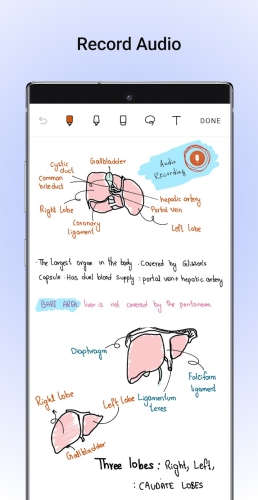 Record Audio
DONE
Cystic duct
Gallbladder
Common bile duct
Audio Recording
hepatic artery
Portal vein
Right lobe
Coronary ligament
Left lobe
· The largest organ in the body · Covered by Glisson's
Capsule · Has dual blood supply : portal vein + hepatic artery
BARE AREA: liver is not covered by the peritoneum
Diaphragm
Falciform ligament
Right lobe
Left lobe
Ligamentum teres
Gallbladder
Three lobes : Right, Left,
: CAUDATE LOBES